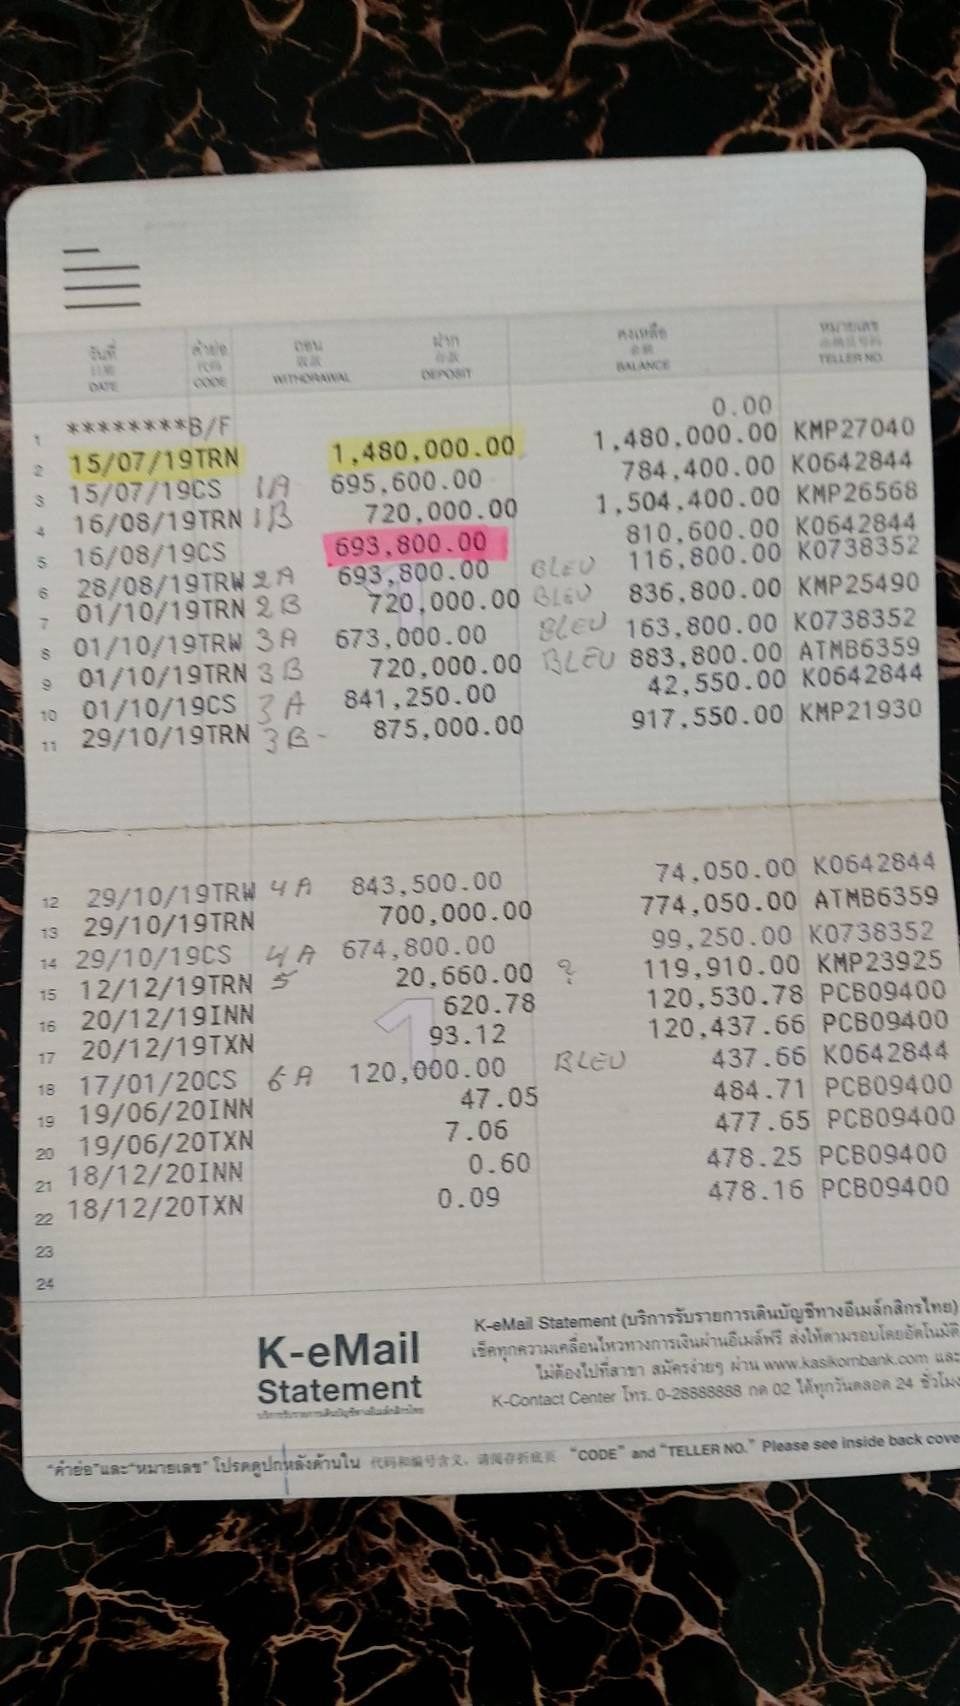 วันที่ คำย่อ ถอน ฝาก คงเหลือ หมายเลข
日期 代码 取款 存款 余额
DATE CODE WITHDRAWAL DEPOSIT BALANCE TELLER NO.
1 ********B/F 0.00
2 15/07/19TRN 1,480,000.00 1,480,000.00 KMP27040
3 15/07/19CS 1A 695,600.00 784,400.00 K0642844
4 16/08/19TRN 1B 720,000.00 1,504,400.00 KMP26568
5 16/08/19CS 693,800.00 810,600.00 K0642844
6 28/08/19TRW 2A 693,800.00 BLEU 116,800.00 K0738352
7 01/10/19TRN 2B 720,000.00 BLEU 836,800.00 KMP25490
8 01/10/19TRW 3A 673,000.00 BLEU 163,800.00 K0738352
9 01/10/19TRN 3B 720,000.00 BLEU 883,800.00 ATMB6359
10 01/10/19CS 3A 841,250.00 42,550.00 K0642844
11 29/10/19TRN 3B - 875,000.00 917,550.00 KMP21930
12 29/10/19TRW 4A 843,500.00 74,050.00 K0642844
13 29/10/19TRN 700,000.00 774,050.00 ATMB6359
14 29/10/19CS 4A 674,800.00 99,250.00 K0738352
15 12/12/19TRN 5 20,660.00 ? 119,910.00 KMP23925
16 20/12/19INN 620.78 120,530.78 PCB09400
17 20/12/19TXN 93.12 120,437.66 PCB09400
18 17/01/20CS 6A 120,000.00 BLEU 437.66 K0642844
19 19/06/20INN 47.05 484.71 PCB09400
20 19/06/20TXN 7.06 477.65 PCB09400
21 18/12/20INN 0.60 478.25 PCB09400
22 18/12/20TXN 0.09 478.16 PCB09400
23
24
1
K-eMail
Statement
K-eMail Statement (บริการรับรายการเดินบัญชีทางอีเมล์กสิกรไทย)
เช็คทุกความเคลื่อนไหวทางการเงินผ่านอีเมล์ฟรี ส่งให้ตามรอบโดยอัตโนมัติ
ไม่ต้องไปที่สาขา สมัครง่ายๆ ผ่าน www.kasikornbank.com และ
K-Contact Center โทร. 0-28888888 กด 02 ได้ทุกวันตลอด 24 ชั่วโมง
"คำย่อ"และ"หมายเลข" โปรดดูปกหลังด้านใน 代码和编号含义，请阅存折底页 "CODE" and "TELLER NO." Please see inside back cove